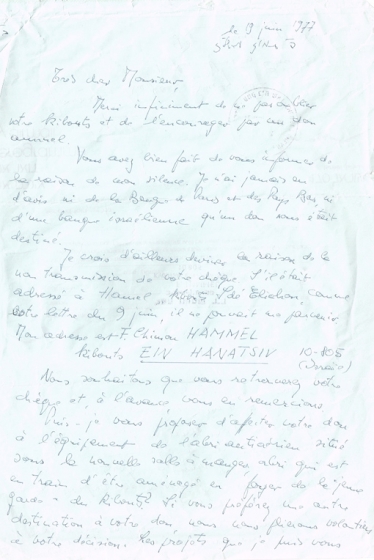 le 9 juin 1977
Très cher Monsieur,
Merci infiniment de ne pas oublier
votre kibouts et de l'encourager par un don
annuel.
Vous avez bien fait de vous informer de
la raison de mon silence. Je n'ai jamais eu
d'avis ni de la Banque de Paris et des Pays Bas, ni
d'une banque israélienne qu'un don nous était
destiné.
Je crois d'ailleurs deviner la raison de la
non transmission de votre chèque. S'il était
adressé à Hammel, kibouts Sdé Eliahou, comme
votre lettre du 9 juin, il ne pouvait me parvenir.
Mon adresse est F. Chimon HAMMEL
kibouts EIN HANATSIV 10-805
(Israël)
Nous souhaitons que vous retrouverez votre
chèque et à l'avance vous en remercions.
Puis-je vous proposer d'affecter votre don
à l'équipement de l'abri antiaérien situé
sous la nouvelle salle à manger, abri qui est
en train d'être aménagé en foyer de la jeune
garde du kibouts? Si vous préférez une autre
destination à votre don, nous nous plierons volontiers
à votre décision. Les projets que je puis vous